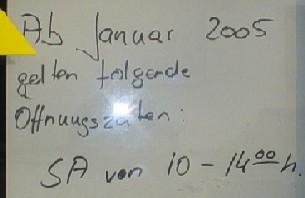 Ab Januar 2005
gelten folgende
Öffnungszeiten:
SA von 10-14⁰⁰h.